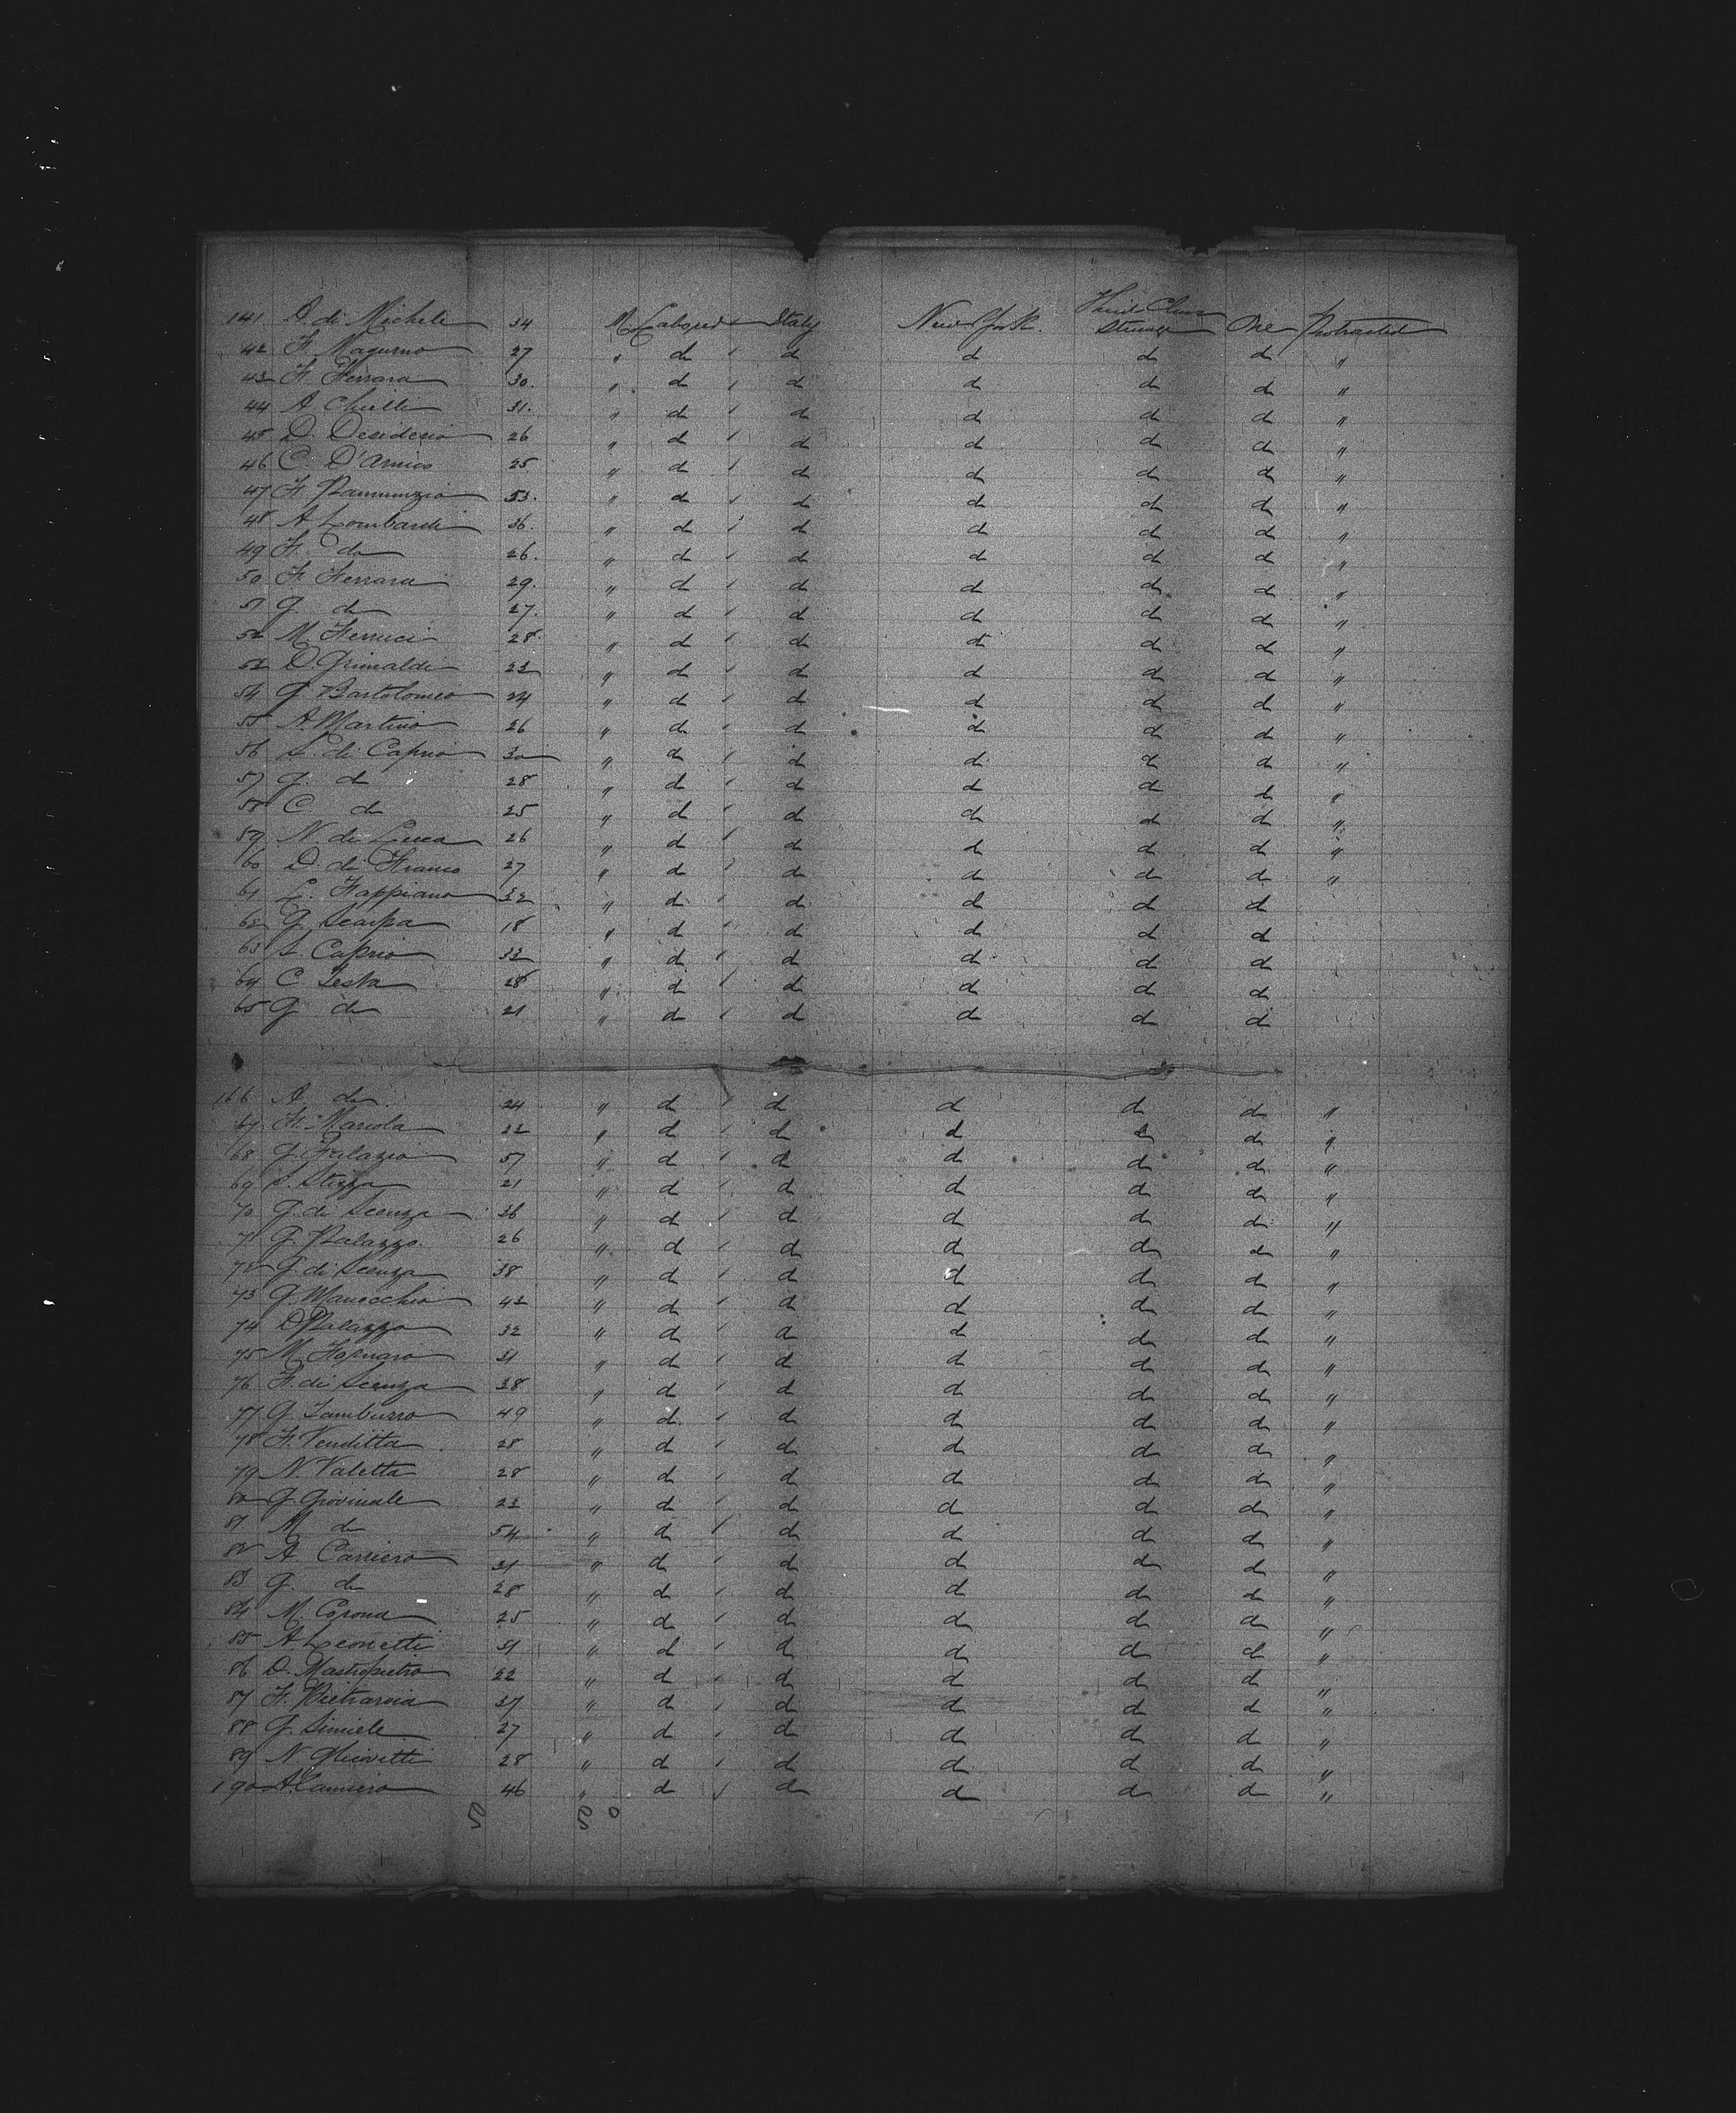 141 A. di Micheli 34 M Labored Italy New York. Third Class Steerage One Protracted
42 F. Magurno 27 " do do do do do "
43 F. Ferrara 30. " do do do do do "
44 A. Chielli 31. " do do do do do "
45 D. Desiderio 26 " do do do do do "
46 C. D'Amico 25 " do do do do do "
47 F. Pannunzio 53. " do do do do do "
48 A. Lombardi 36. " do do do do do "
49 F. do 26. " do do do do do "
50 F. Ferrara 29. " do do do do do "
51 G. do 27. " do do do do do "
52 M. Ferruci 28 " do do do do do "
53 D. Grimaldi 23 " do do do do do "
54 G. Bartolomeo 24 " do do do do do "
55 A. Martino 26 " do do do do do "
56 S. di Caprio 30 " do do do do do "
57 G. do 28 " do do do do do "
58 C. do 25 " do do do do do "
59 N. di Lucca 26 " do do do do do "
60 D. di Franco 27 " do do do do do "
61 L. Fappiano 32 " do do do do do
62 G. Scarpa 18 " do do do do do
63 S. Caprio 33 " do do do do do
64 C. Testa 28 " do do do do do
65 G do 21 " do do do do do
166 A. do 24 " do do do do do "
67 F. Mariola 22 " do do do do do "
68 G. 57 " do do do do do "
69 S. 21 " do do do do do "
70 G. di Scenza 36 " do do do do do "
71 G. Palazzo. 26 " do do do do do "
72 G. di Scenza 38 " do do do do do "
73 G. Manocchio 43 " do do do do do "
74 D. Palazzo 32 " do do do do do "
75 M. 31 " do do do do do "
76 F. di Scenza 38 " do do do do do "
77 G. Tamburro 49 " do do do do do "
78 F. Venditta 28 " do do do do do "
79 N. Valetta 28 " do do do do do "
80 G. Giovinale 23 " do do do do do "
81 M. do 54 " do do do do do "
82 A. Carriero 31 " do do do do do "
83 G. do 28 " do do do do do "
84 M. Corona 25 " do do do do do "
85 A. Leonetti 31 " do do do do do "
86 D. Mastropietro 22 " do do do do do "
87 F. 37 " do do do do do "
88 G. Simiele 27 " do do do do do "
89 N. 28 " do do do do do "
190 A. 46 " do do do do do "